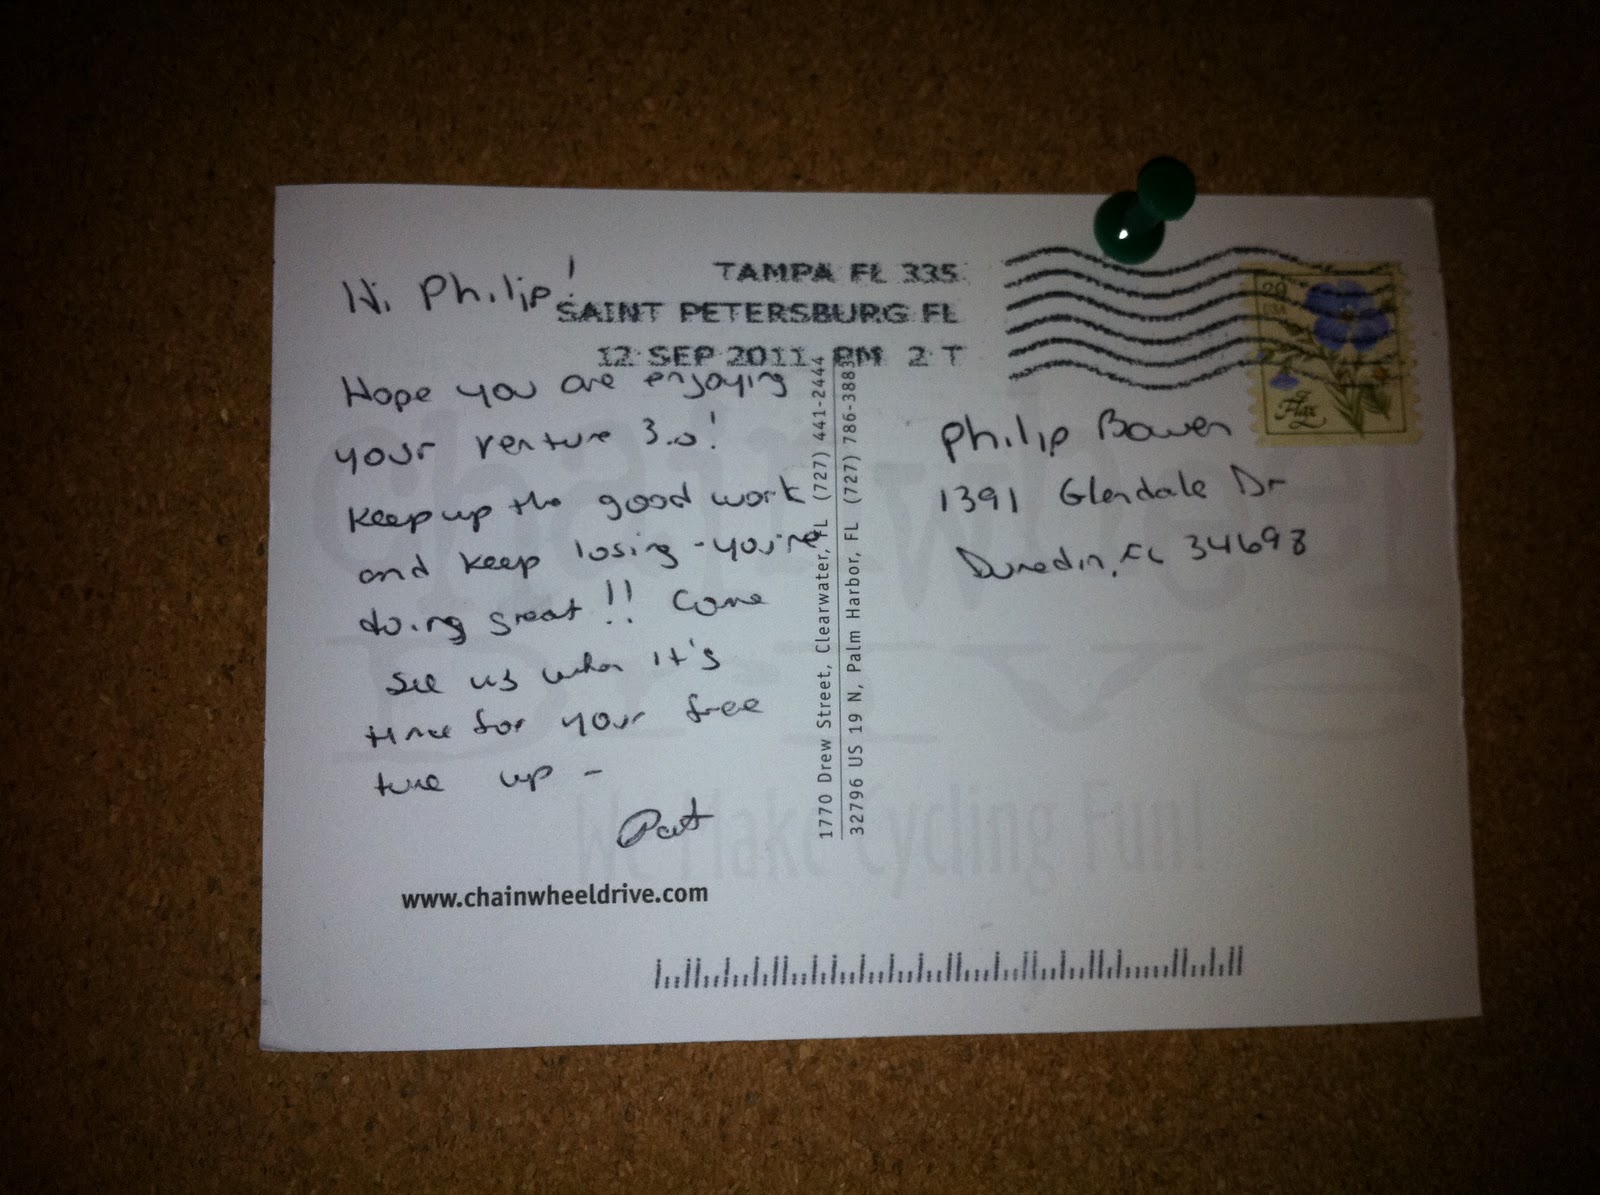 Hi Philip!
TAMPA FL 335
SAINT PETERSBURG FL
12 SEP 2011 PM 2 T
Hope you are enjoying
your venture 3.0!
Keep up the good work
and keep losing - you're
doing great!! Come
see us when it's
time for your free
tune up -
Pat
www.chainwheeldrive.com
1770 Drew Street, Clearwater, FL (727) 441-2444
32796 US 19 N, Palm Harbor, FL (727) 786-3883
29
Flax
Philip Bowen
1391 Glendale Dr
Dunedin, FL 34698
chainwheel
DRIVE
We Make Cycling Fun!